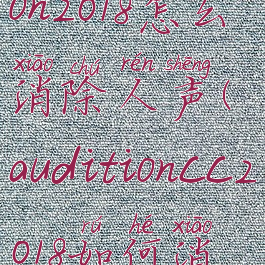 on2018怎么
xiāo chú rén shēng
消除人声(
auditionCC2
rú hé xiāo
018如何消